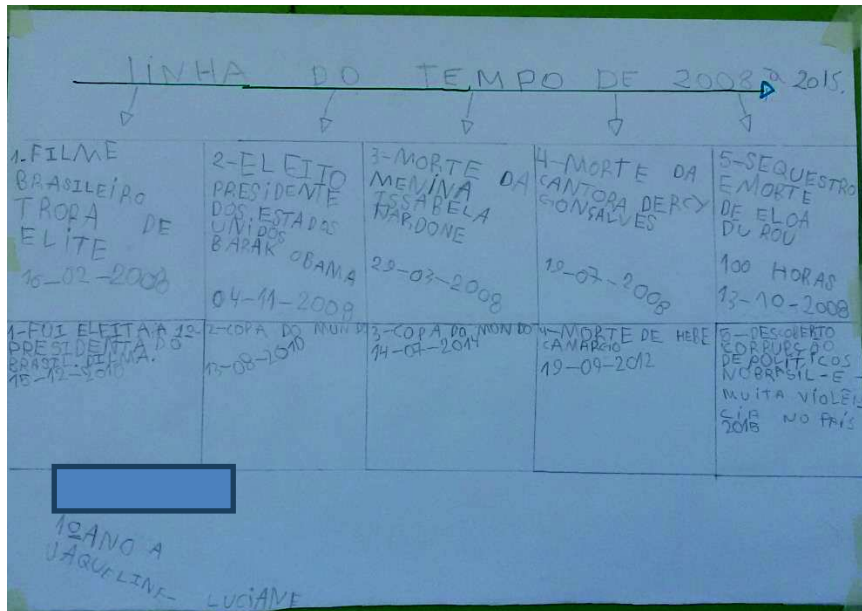 LINHA DO TEMPO DE 2008 a 2015.
1-FILME
BRASILEIRO
TROPA DE
ELITE
16-02-2008
2-ELEITO
PRESIDENTE
DOS ESTADOS
UNIDOS
BARAK OBAMA
04-11-2008
3-MORTE DA
MENINA
ISSABELA
NARDONE
29-03-2008
4-MORTE DA
CANTORA DERCY
GONSALVES
19-07-2008
5-SEQUESTRO
E MORTE
DE ELOA
DU ROU
100 HORAS
13-10-2008
1-FOI ELEITA A 1ª
PRESIDENTA DO
BRASIL. DILMA.
15-12-2010
2-COPA DO MUNDO
13-08-2010
3-COPA DO MONDO
14-07-2014
4-MORTE DE HEBE
CAMARGO
19-09-2012
5-DESCOBERTO
CORRUPÇÃO
DE POLÍTICOS
NO BRASIL-E-
MUITA VIOLÊN
CIA NO PAÍS
2015
1º ANO A
JAQUELINE- LUCIANE